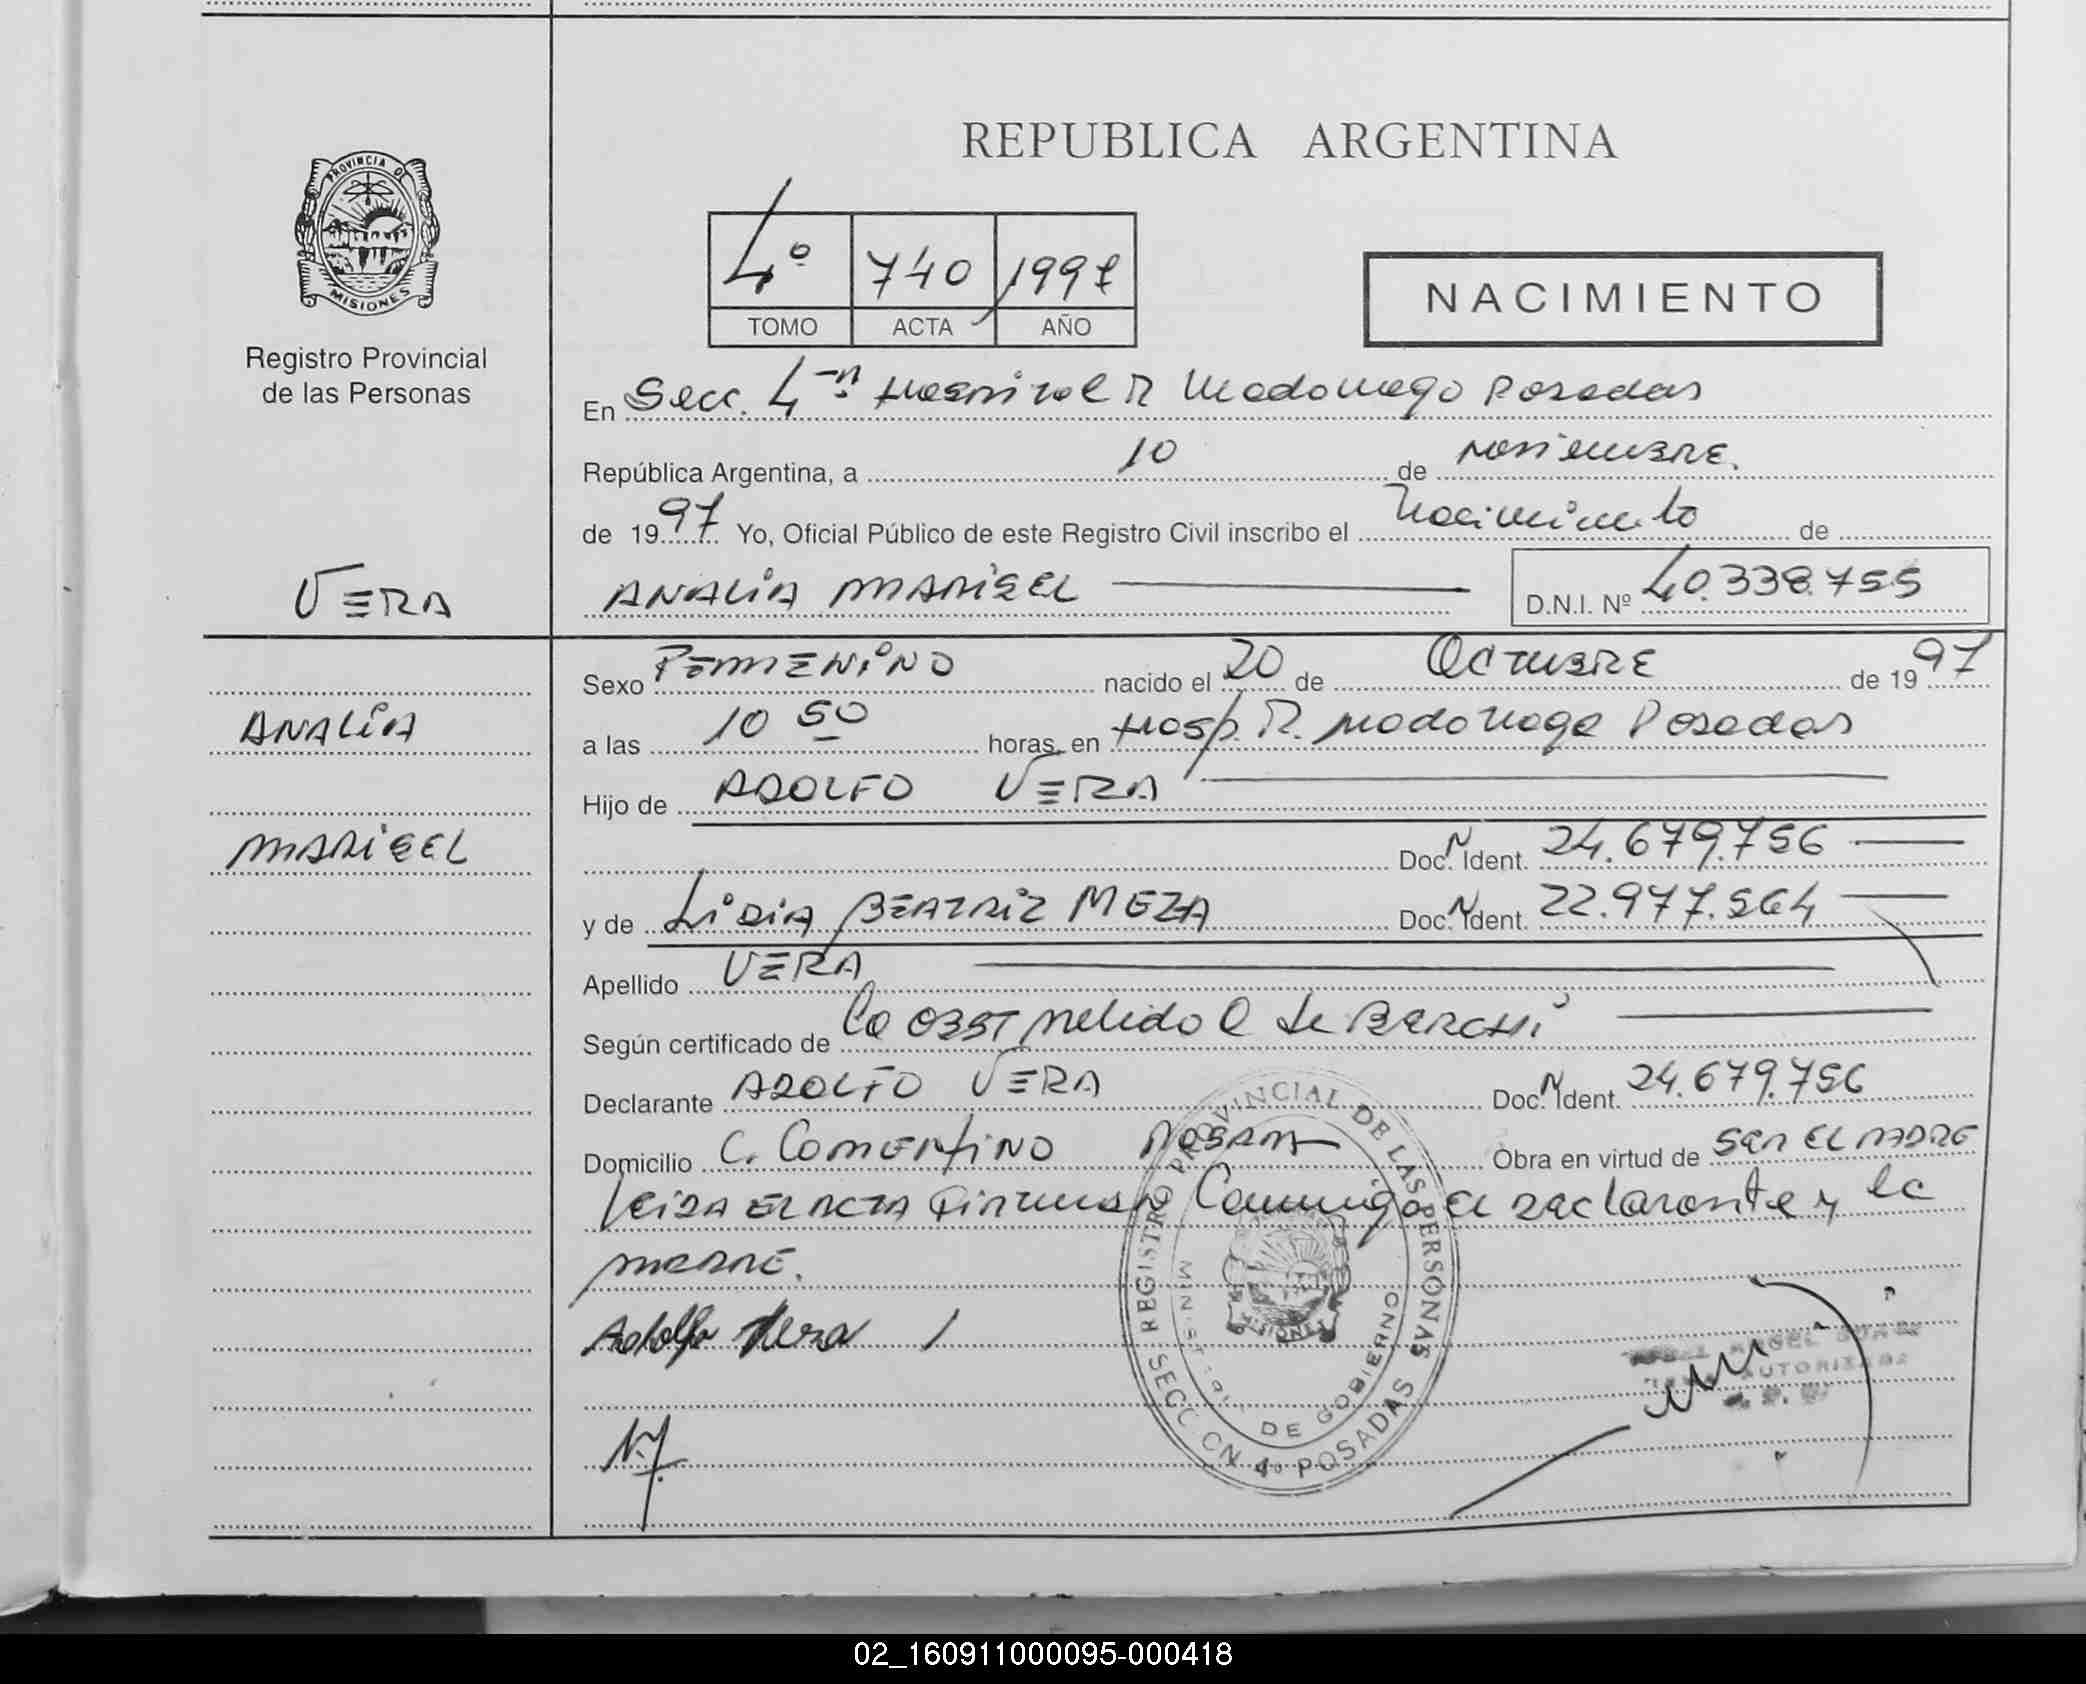 REPUBLICA ARGENTINA
PROVINCIA DE
MISIONES
Registro Provincial
de las Personas
4º 740 1997
TOMO ACTA AÑO
NACIMIENTO
En Secc. 4ta Hospital R Madariaga Posadas
República Argentina, a 10 de noviembre.
de 1997 Yo, Oficial Público de este Registro Civil inscribo el Nacimiento de
VERA
ANALIA MARISEL
D.N.I. Nº 40.338.755
Sexo FEMENINO nacido el 20 de OCTUBRE de 1997
ANALIA
a las 10 50 horas, en Hosp. R. Madariaga Posadas
Hijo de ADOLFO VERA
MARISEL
Doc. N Ident. 24.679.756
y de LIDIA BEATRIZ MEZA Doc. N Ident. 22.977.564
Apellido VERA
Según certificado de La OBST
Declarante ADOLFO VERA Doc. N Ident. 24.679.756
Domicilio Obra en virtud de SER EL PADRE
LEIDA EL ACTA FIRMAN Conmigo EL DECLARANTE y la
MADRE.
Adolfo Vera
REGISTRO PROVINCIAL DE LAS PERSONAS
MINISTERIO DE GOBIERNO
MISIONES
SECCION 4º POSADAS
ANGEL
AUTORIZADA
02_160911000095-000418